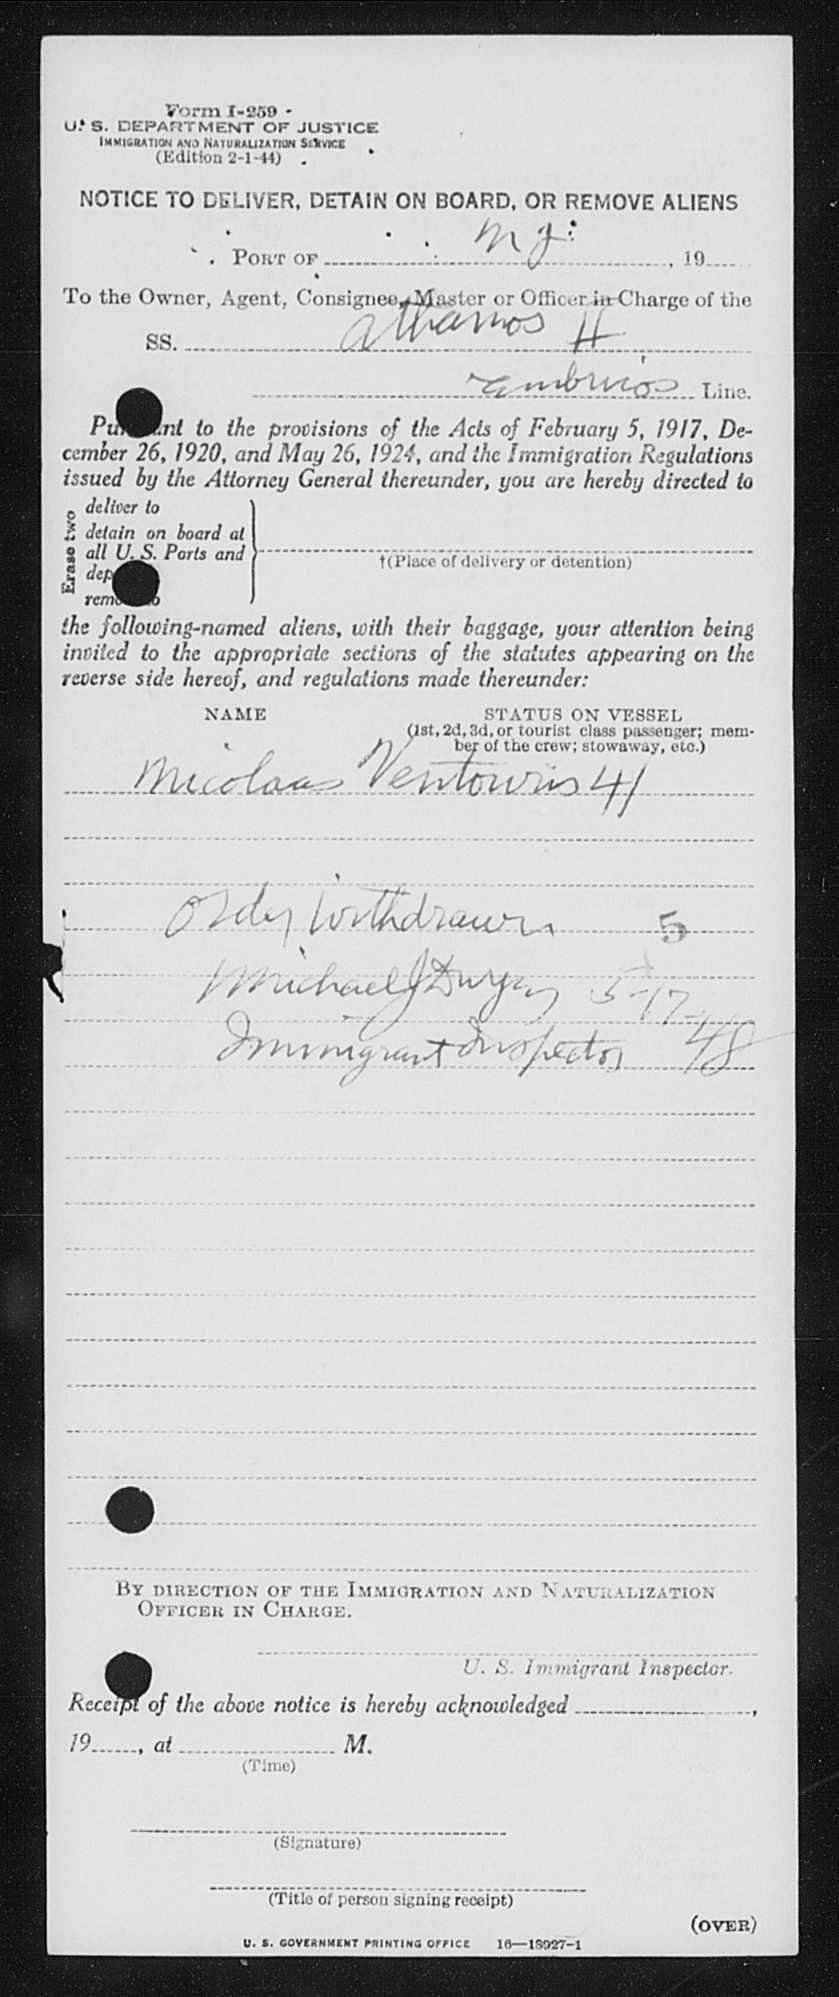 Form I-259
U. S. DEPARTMENT OF JUSTICE
IMMIGRATION AND NATURALIZATION SERVICE
(Edition 2-1-44)
NOTICE TO DELIVER, DETAIN ON BOARD, OR REMOVE ALIENS
PORT OF , 19
To the Owner, Agent, Consignee, Master or Officer in Charge of the
SS. Athamos H
Embiricos Line.
Pu nt to the provisions of the Acts of February 5, 1917, De-
cember 26, 1920, and May 26, 1924, and the Immigration Regulations
issued by the Attorney General thereunder, you are hereby directed to
Erase two
deliver to
detain on board at
all U. S. Ports and
dep
remo o
†(Place of delivery or detention)
the following-named aliens, with their baggage, your attention being
invited to the appropriate sections of the statutes appearing on the
reverse side hereof, and regulations made thereunder:
NAME STATUS ON VESSEL
(1st, 2d, 3d, or tourist class passenger; mem-
ber of the crew; stowaway, etc.)
Nicolaas Ventouris 41
Order Withdrawn 5
Michael J Dwyer 5-17-
Immigrant Inspector 48
BY DIRECTION OF THE IMMIGRATION AND NATURALIZATION
OFFICER IN CHARGE.
U. S. Immigrant Inspector.
Receipt of the above notice is hereby acknowledged ,
19 , at M.
(Time)
(Signature)
(Title of person signing receipt)
(OVER)
U. S. GOVERNMENT PRINTING OFFICE 16—18927-1